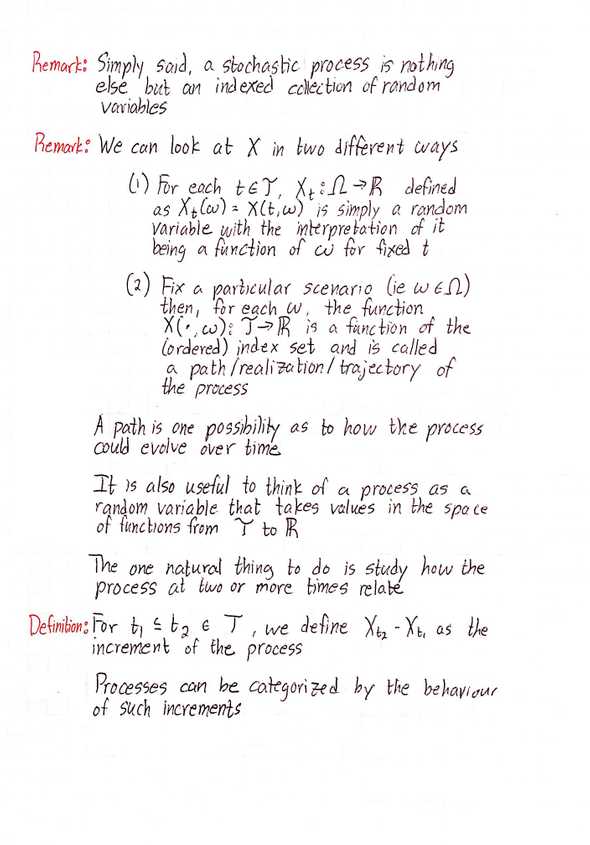 Remark: Simply said, a stochastic process is nothing
else but an indexed collection of random
variables
Remark: We can look at X in two different ways
(1) For each t ∈ T, Xₜ : Ω → ℝ defined
as Xₜ(ω) = X(t, ω) is simply a random
variable with the interpretation of it
being a function of ω for fixed t
(2) Fix a particular scenario (ie ω ∈ Ω)
then, for each ω, the function
X(·, ω): T → ℝ is a function of the
(ordered) index set and is called
a path/realization/trajectory of
the process
A path is one possibility as to how the process
could evolve over time
It is also useful to think of a process as a
random variable that takes values in the space
of functions from T to ℝ
The one natural thing to do is study how the
process at two or more times relate
Definition: For t₁ ≤ t₂ ∈ T, we define Xₜ₂ - Xₜ₁ as the
increment of the process
Processes can be categorized by the behaviour
of such increments